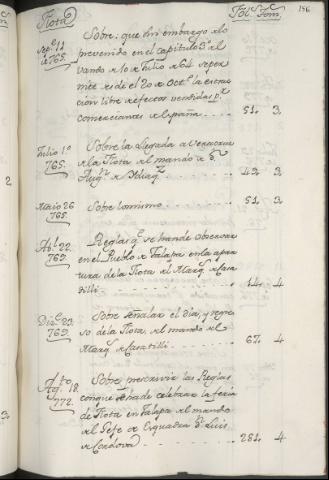 Flota Fol. Tom. 156
Sre. 11
de 765.
Sobre: que sin embargo de lo
prevenido en el capitulo 3º del
vando de 10 de Julio de 64 se per
mite desde el 20 de Octe. la extrac
cion libre de efectos vendidos pr.
comerciantes de españa. 51. 3.
Julio 1º
765.
Sobre la llegada a Veracruz
de la Flota del mando de Dn.
Augn. de Ydiaqz. 49. 3.
Maio 26
765.
Sobre lo mismo 51. 3
Ab. 22.
769.
Reglas qe. se han de observar
en el Pueblo de Jalapa en la aper
tura de la Flota del Marqs. de Casa
tilli 14. 4
Dize. 23.
769.
Sobre señalar el dia, y regre
so de la Flota del mando del
Marqs. de Casa tilli 67. 4
Agto. 18.
772.
Sobre prescrivir las Reglas
con que se ha de celebrar la feria
de Flota en Jalapa del mando
del Gefe de Esquadra Dn. Luis
de Cordova 281. 4
2
3.